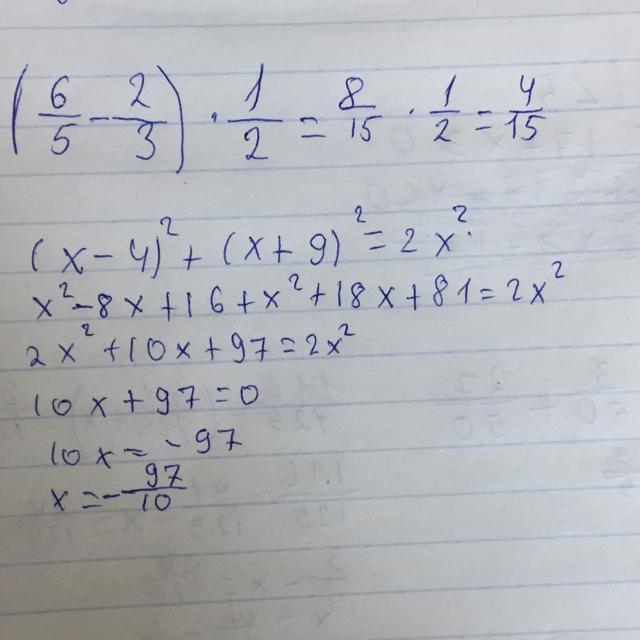 (6/5 - 2/3) · 1/2 = 8/15 · 1/2 = 4/15
(x - 4)² + (x + 9)² = 2x²
x² - 8x + 16 + x² + 18x + 81 = 2x²
2x² + 10x + 97 = 2x²
10x + 97 = 0
10x = -97
x = -97/10